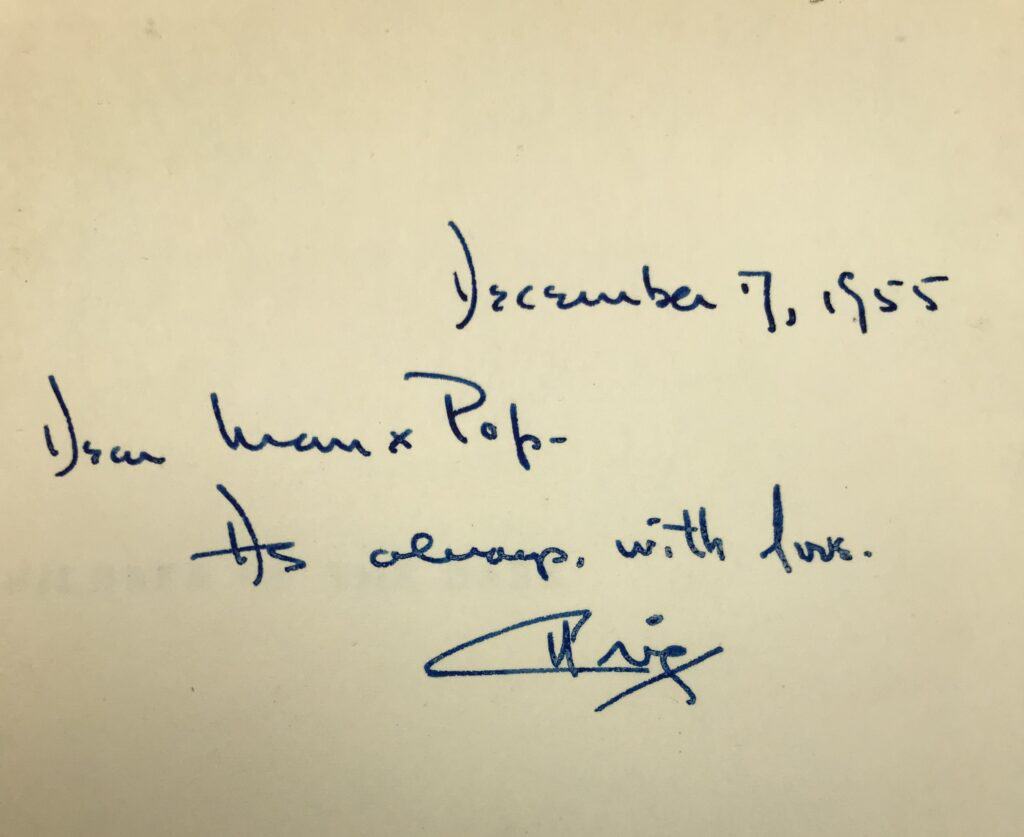 December 7, 1955
Dear Mam x Pop-
As always, with love.
Chris